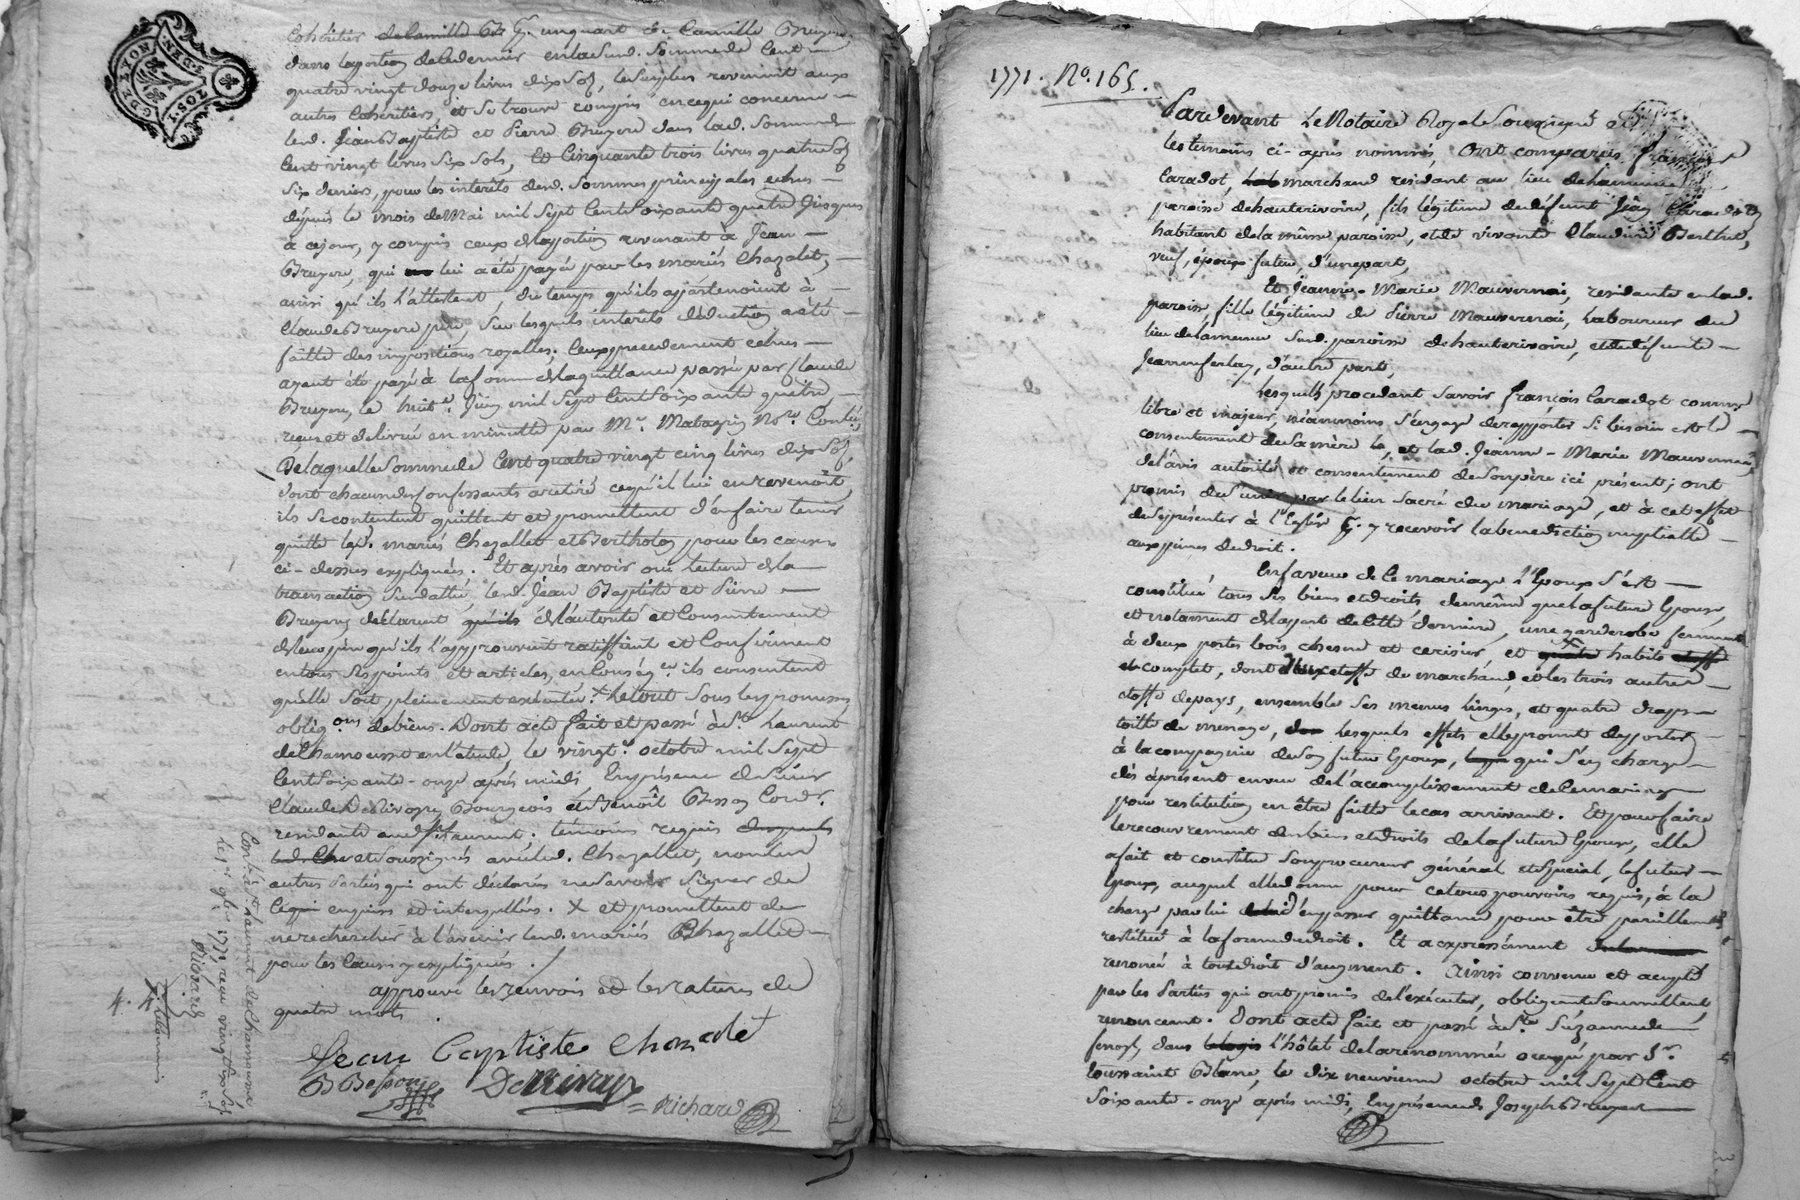 G. DE LYON
2 SOLS
cohéritier de Camille Br G. un quart de Camille Bruyere
dans la portion de ce dernier en lasusd. Somme de Cent
quatre vingt douze livres dix Sols, le surplus revenant aux
autres cohéritiers, et Se trouve compris en ce qui concerne
lesd. Jean Baptiste et Pierre Bruyere dans lad. Somme de
Cent vingt livres Six Sols, et Cinquante trois livres quatre Sols
Six deniers, pour les interêts desd. Sommes principales echus
depuis le mois de Mai mil Sept Cent Soixante quatre Jusques
à ce jour, y compris ceux de la portion revenant à Jean
Bruyere, qui lui a été payée par les mariés Chazalet,
ainsi qu'ils l'attestent, du temps qu'ils appartenoient à
Claude Bruyere pere, Sur lesquels interêts déduction a été
faitte des impositions royalles; Ceux précedemment echus
ayant été payé à la forme de la quittance passée par Claude
Bruyere, le huit Juin mil Sept Cent Soixante quatre,
reçue et delivrée en minutte par Me. Matagrin Nore.
De laquelle Somme de Cent quatre vingt cinq livres dix Sols,
dont chacun des confessants a retiré ce qu'il lui en revenoit,
ils Se contentent quittent et promettent d'en faire tenir
quitte lesd. mariés Chazallet et Bertholon pour les causes
ci-dessus expliquées. Et après avoir oui lecture de la
transaction Susdattée, lesd. Jean Baptiste et Pierre
Bruyere déclarent qu'ils de l'autorité et Consentement
de leur père qu'ils l'approuvent ratiffient et Confirment
en tous Ses points et articles, en Conséqce. ils consentent
qu'elle Soit pleinement exécutée. X Le tout Sous les promesses
obligons de biens. Dont acte fait et passé à St. Laurent
de Chamousset en l'etude, le vingt octobre mil Sept
Cent Soixante-onze après midi, En présence de Sieur
Claude Derivoyre Bourgeois et Benoît Besson Cordr.
residants aud. St. Laurent, témoins requis
et Soussignés avec led. Chazallet, non les
autres Parties qui ont déclarés ne Savoir Signer de
ce enquises et interpellées. X et promettent de
ne rechercher à l'avenir lesd. mariés Chazallet
pour les Causes y expliquées ./.
approuvé les renvois et les ratures de
quatre mots
Jean Baptiste Chazalet
B Besson
Richard
Con.lé à St. Laurent de Chamousset
le 1er. 9bre 1771 reçu vingt six Sols
Richard
4. 4
1771. No. 165.
Pardevant Le Notaire Royal Soussigné et
les témoins ci-après nommés, Ont comparus François
Caradot, marchand résidant au lieu de
paroisse de hauterivoire, fils légitime de défunt Jean Caradot,
habitant de la même paroisse, et de vivante Claudine Berthet,
veuf, époux futur, d'une part,
Et Jeanne-Marie Mauvernai, residante en lad.
paroisse, fille légitime de Pierre Mauvernai, Laboureur du
lieu de lamure Susd. paroisse de hauterivoire, et de défunte
Jeanne ferlay, d'autre part,
Lesquels procedant Savoir François Caradot comme
libre et majeur, néanmoins S'engage de rapporter Si besoin est le
consentement de Sa mère, et lad. Jeanne-Marie Mauvernai,
de l'avis autorité et consentement de Son père ici présent; ont
promis de S'unir par le lien Sacré du mariage, et à cet effet
de Se présenter à l'Eglise G. y recevoir la benediction nuptialle
aux peines de droit.
En faveur de ce mariage l'Epoux S'est
constitué tous Ses biens et droits, de même que la future Epouse,
et notament de la part de cette dernière, une garderobe fermant
à deux portes bois chesne et cerisier, et habits
complet, dont deux étoffe de marchand, et les trois autres
étoffe de pays, ensemble Ses menus linges, et quatre draps
toille de menage, Lesquels effets elle promet de porter
à la compagnie de Son futur Epoux, qui S'en charge
dès àprésent en vue de l'accomplissement de ce mariage
pour restitution en être faitte le cas arrivant. Et pour faire
le recouvrement des biens et droits de la future Epouse, elle
a fait et constitue Son procureur général et Special, le futur
Epoux, auquel elle donne pour ce tous pouvoirs requis, à la
charge par lui d'en passer quittance pour être pareillement
restitué à la forme de droit. Et a expressément
renoncé à tout droit d'augment. Ainsi convenu et accepté
par les Parties qui ont promis de l'exécuter, obligeant Soumettent,
renoncent. Dont acte fait et passé à Ste. Foy
dans l'hôtel de la renommée occupé par Sr.
toussaint Blanc, le dix neuvieme octobre mil Sept Cent
Soixante-onze après midi, En présence de Joseph Bruyere